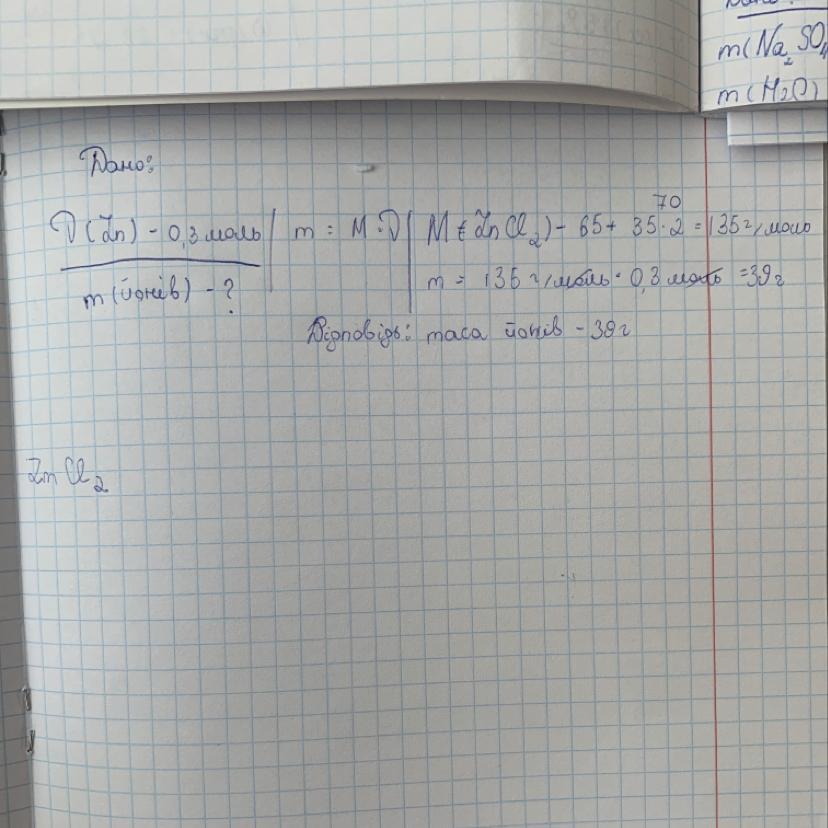 m(Na₂SO₄
m(H₂O)
Дано:
ν(Zn) - 0,3 моль
m(йонів) - ?
m = M · ν
70
M(ZnCl₂) - 65 + 35·2 = 135 г/моль
m = 135 г/моль · 0,3 моль = 39г
Відповідь: маса йонів - 39г
ZnCl₂